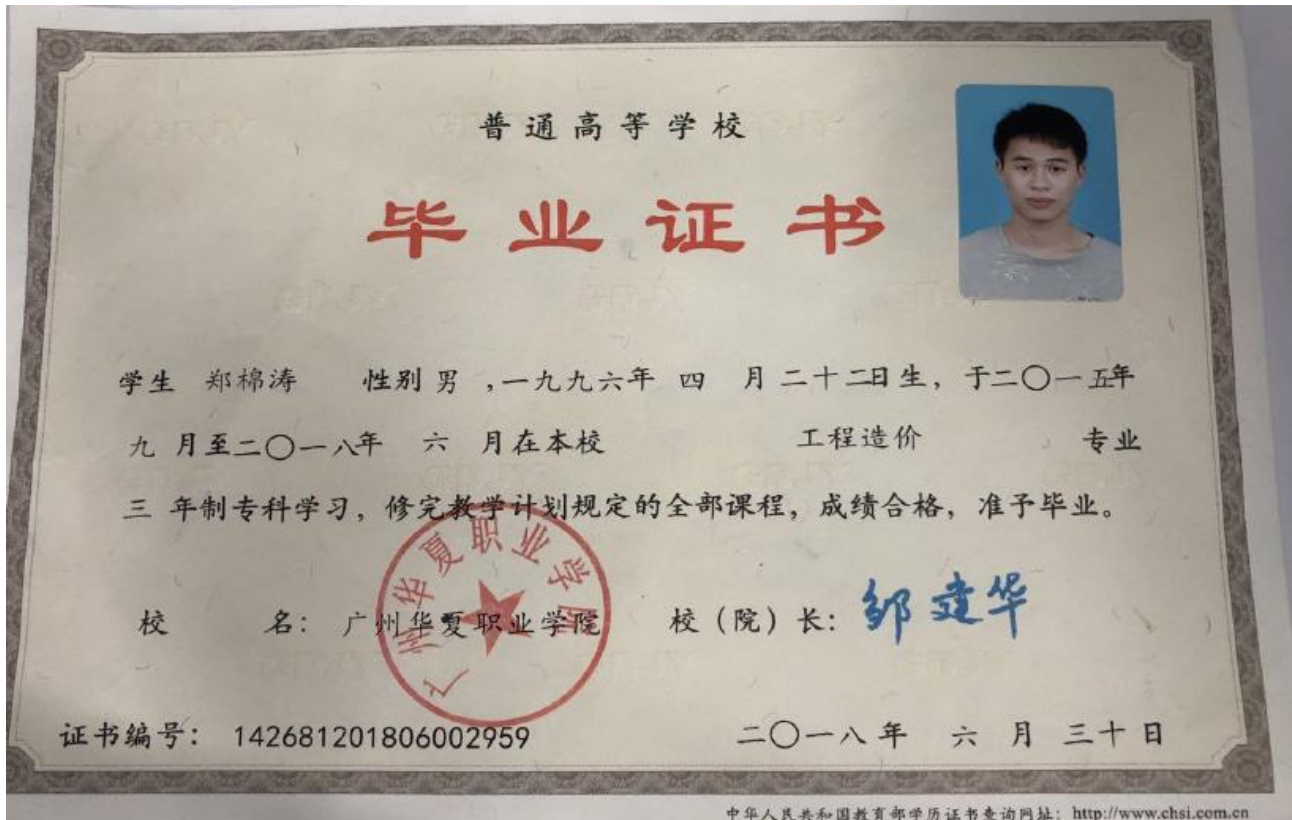 普通高等学校
毕业证书
学生 郑棉涛 性别 男 ,一九九六年 四 月二十二日生，于二〇一五年
九 月至二〇一八年 六 月在本校 工程造价 专业
三 年制专科学习，修完教学计划规定的全部课程，成绩合格，准予毕业。
广州华夏职业学院
校 名：广州华夏职业学院 校（院）长：邹建华
证书编号： 142681201806002959 二〇一八年 六 月 三十日
中华人民共和国教育部学历证书查询网址：http://www.chsi.com.cn